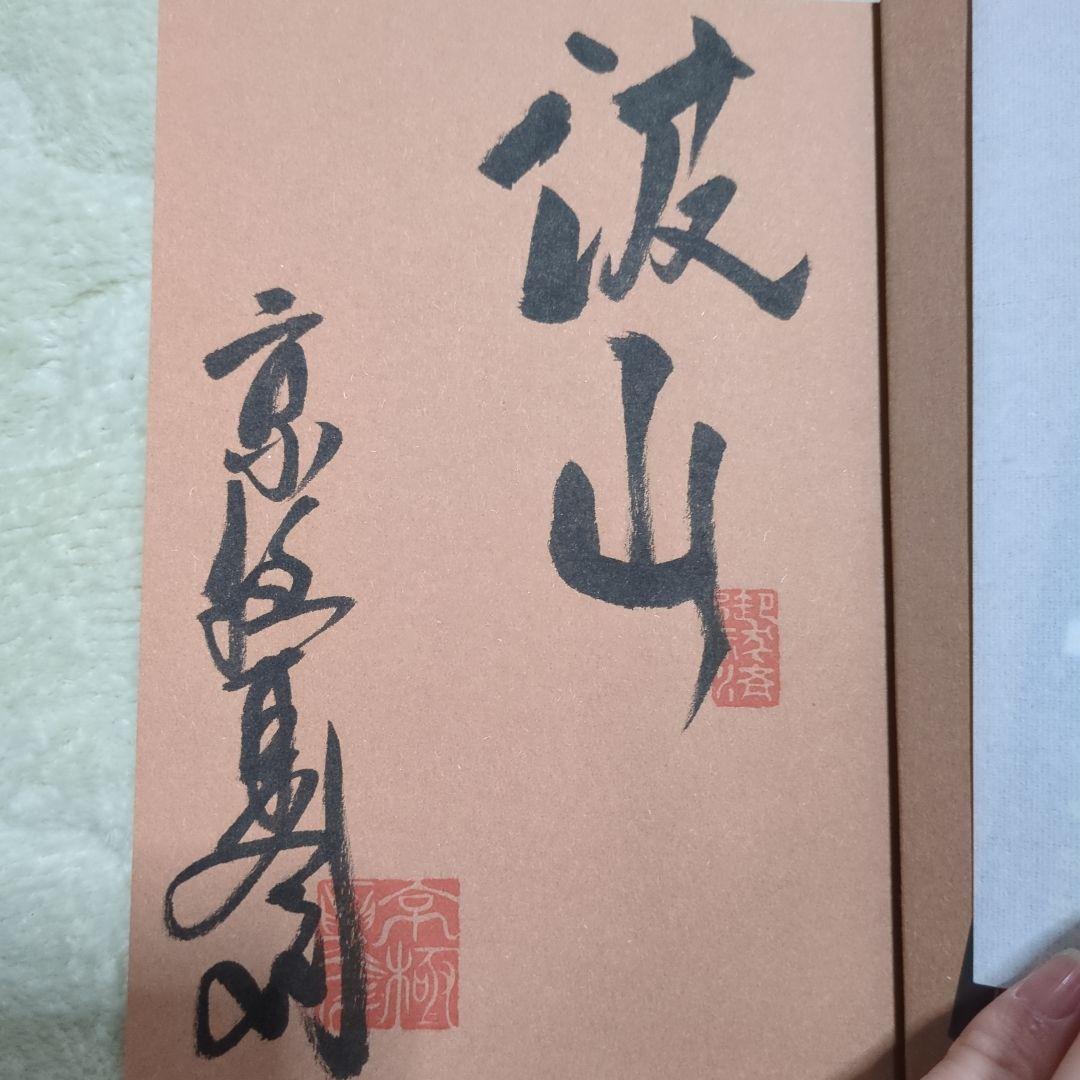 波山
京極夏彦
京極
夏彦